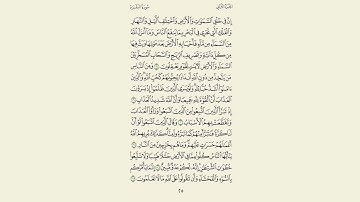 الجزء الثاني سورة البقرة
إِنَّ فِي خَلْقِ ٱلسَّمَٰوَٰتِ وَٱلْأَرْضِ وَٱخْتِلَٰفِ ٱلَّيْلِ وَٱلنَّهَارِ
وَٱلْفُلْكِ ٱلَّتِي تَجْرِي فِي ٱلْبَحْرِ بِمَا يَنفَعُ ٱلنَّاسَ وَمَآ أَنزَلَ ٱللَّهُ
مِنَ ٱلسَّمَآءِ مِن مَّآءٍ فَأَحْيَا بِهِ ٱلْأَرْضَ بَعْدَ مَوْتِهَا وَبَثَّ فِيهَا
مِن كُلِّ دَآبَّةٍ وَتَصْرِيفِ ٱلرِّيَٰحِ وَٱلسَّحَابِ ٱلْمُسَخَّرِ بَيْنَ
ٱلسَّمَآءِ وَٱلْأَرْضِ لَأٓيَٰتٍ لِّقَوْمٍ يَعْقِلُونَ ١٦٤ وَمِنَ ٱلنَّاسِ
مَن يَتَّخِذُ مِن دُونِ ٱللَّهِ أَندَادًا يُحِبُّونَهُمْ كَحُبِّ ٱللَّهِ وَٱلَّذِينَ
ءَامَنُوٓا۟ أَشَدُّ حُبًّا لِّلَّهِ وَلَوْ يَرَى ٱلَّذِينَ ظَلَمُوٓا۟ إِذْ يَرَوْنَ
ٱلْعَذَابَ أَنَّ ٱلْقُوَّةَ لِلَّهِ جَمِيعًا وَأَنَّ ٱللَّهَ شَدِيدُ ٱلْعَذَابِ ١٦٥
إِذْ تَبَرَّأَ ٱلَّذِينَ ٱتُّبِعُوا۟ مِنَ ٱلَّذِينَ ٱتَّبَعُوا۟ وَرَأَوُا۟ ٱلْعَذَابَ
وَتَقَطَّعَتْ بِهِمُ ٱلْأَسْبَابُ ١٦٦ وَقَالَ ٱلَّذِينَ ٱتَّبَعُوا۟ لَوْ أَنَّ
لَنَا كَرَّةً فَنَتَبَرَّأَ مِنْهُمْ كَمَا تَبَرَّءُوا۟ مِنَّا كَذَٰلِكَ يُرِيهِمُ ٱللَّهُ
أَعْمَٰلَهُمْ حَسَرَٰتٍ عَلَيْهِمْ وَمَا هُم بِخَٰرِجِينَ مِنَ ٱلنَّارِ ١٦٧
يَٰٓأَيُّهَا ٱلنَّاسُ كُلُوا۟ مِمَّا فِي ٱلْأَرْضِ حَلَٰلًا طَيِّبًا وَلَا تَتَّبِعُوا۟
خُطُوَٰتِ ٱلشَّيْطَٰنِ إِنَّهُۥ لَكُمْ عَدُوٌّ مُّبِينٌ ١٦٨ إِنَّمَا يَأْمُرُكُم
بِٱلسُّوٓءِ وَٱلْفَحْشَآءِ وَأَن تَقُولُوا۟ عَلَى ٱللَّهِ مَا لَا تَعْلَمُونَ ١٦٩
٢٥